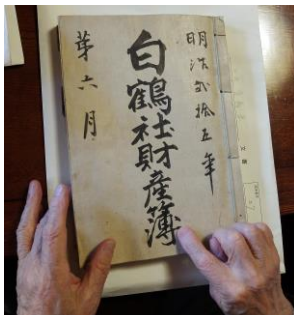 明治弐拾五年
白鶴社財産簿
第六月